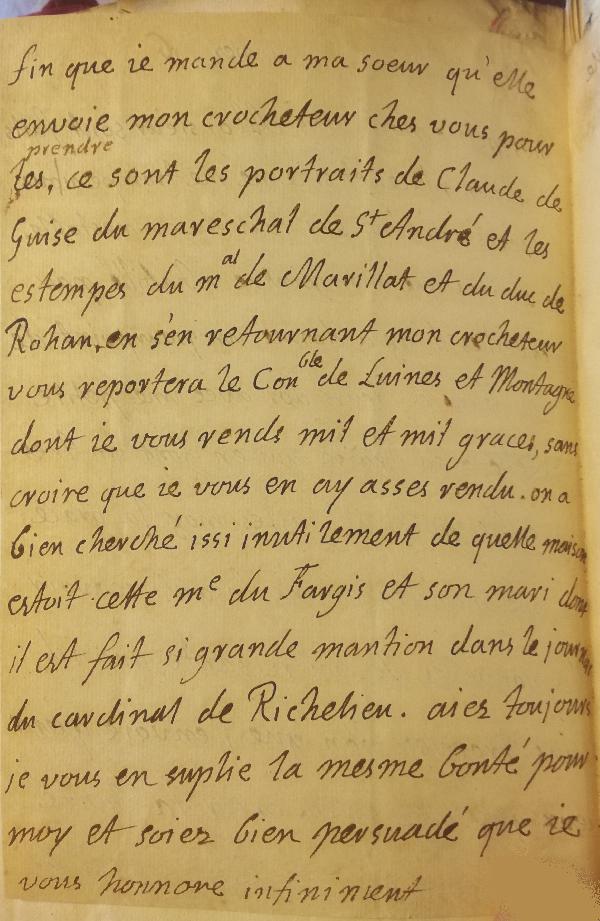 fin que ie mande a ma soeur qu'elle
envoie mon crocheteur ches vous pour
prendre
les, ce sont les portraits de Claude de
Guise du mareschal de St André et les
estempes du mal de Marillat et du duc de
Rohan, en s'en retournant mon crocheteur
vous reportera le Conble de Luines et Montagne
dont ie vous rends mil et mil graces, sans
croire que ie vous en ay asses rendu. on a
bien cherché issi inutilement de quelle maison
estoit cette me du Fargis et son mari dont
il est fait si grande mantion dans le journal
du cardinal de Richelieu. aiez toujours
je vous en suplie la mesme bonté pour
moy et soiez bien persuadé que ie
vous honnore infiniment